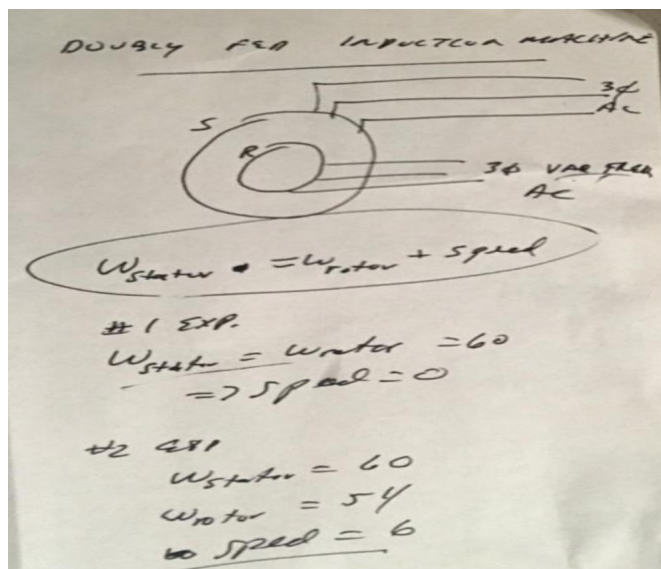 DOUBLY FED INDUCTION MACHINE
3ϕ
AC
S
R
3ϕ VAR FREQ
AC
Wstator = Wrotor + Speed
#1 EXP.
Wstator = Wrotor = 60
=> Speed = 0
#2 EXP
Wstator = 60
Wrotor = 54
speed = 6